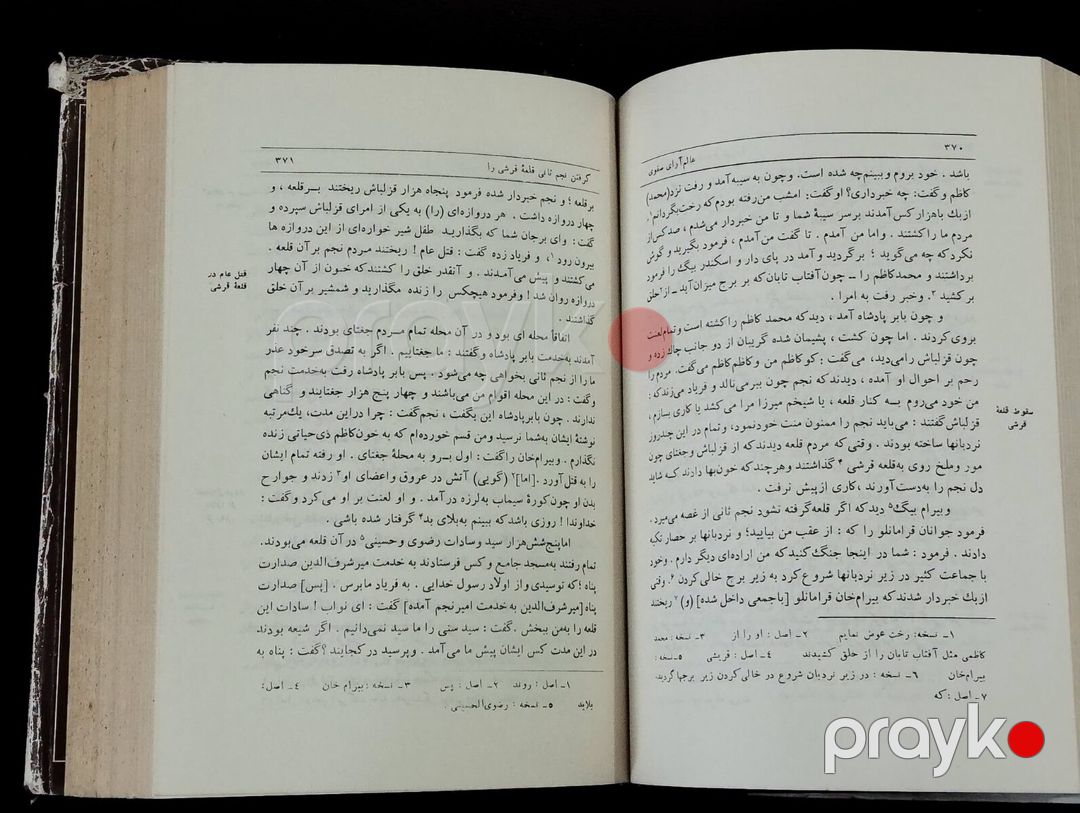 ۳۷۰
عالم‌آرای صفوی
باشد . خود بروم وببینم‌چه شده است. وچون به سیبه‌آمد و رفت نزد(محمد)
کاظم وگفت: چه خبرداری؟ اوگفت: امشب من‌رفته بودم که رخت‌بگردانم۱.
ازبك باهزار کس‌آمدند برسر سیبهٔ شما و تا من خبردار می‌شدم ، صدکس‌از
مردم ما راکشتند . واما من آمدم . تا گفت من‌آمدم ، فرمود بگیرید و گوش
نکرد که چه می‌گوید ؛ برگردید و آمد در پای دار و اسکندر بیگ را فرمود
برداشتند و محمدکاظم را ــ چون آفتاب تابان‌که بر برج میزان‌آید ــ از۳ حلق
بر کشید ۲. وخبر رفت به امرا .
و چون بابر پادشاه آمد ، دیدکه محمد کاظم راکشته است وتمام‌لعنت
بروی‌کردند . اما چون کشت ، پشیمان شده گریبان از دو جانب چاك‌زده و
چون قزلباش رامی‌دید، می‌گفت : کو کاظم من وکاظم‌کاظم می‌گفت. مردم را
رحم بر احوال او آمده ، دیدندکه نجم چون ببر می‌نالد و فریاد می‌زندکه :
من خود می‌روم بـه کنار قلعه ، یا شیخم میرزا مرا می کشد یا کاری بسازم ،
قزلباش‌گفتند : می‌باید نجم را ممنون منت خودنمود، وتمام در این چندروز
نردبانها ساخته بودند . وقتی که مردم قلعه دیدندکه از قزلباش وجغتای چون
مور وملخ روی به‌قلعه قرشی ۴ گذاشتند وهرچندکه خون‌بها دادند کـه شاید
دل نجم را به‌دست‌آورند ،کاری از پیش نرفت .
سقوط قلعهٔ
قرشی
وبیرام بیگ۵ دیدکه اگر قلعه‌گرفته نشود نجم ثانی از غصه می‌میرد ،
فرمود جوانان قرامانلو را که : از عقب من بیایید؛ و نردبانها بر حصار تکیه
دادند . فرمود : شما در اینجا جنگ کنید که من اراده‌ای دیگر دارم . وخود
با جماعت کثیر در زیر نردبانها شروع‌کرد به زیر برج خالی‌کردن ۶. وقتی
ازبك خبردار شدندکه بیرام‌خان قرامانلو [باجمعی داخل شده] (و) ۷ ریختند
۱ــ نسخه: رخت عوض نمایم ۲ــ اصل : او را از ۳ــ نسخه: محمد
کاظمی مثل آفتاب تابان را از حلق کشیدند ۴ــ اصل : قریشی ۵ــ نسخه :
بیرام‌خان ۶ــ نسخه : در زیر نردبان شروع در خالی کردن زیر برجها گردید.
۷ــ اصل : که
گرفتن نجم ثانی قلعهٔ قرشی را
۳۷۱
برقلعه ؛ و نجم خبردار شده فرمود پنجاه هزار قزلباش ریختند بـرقلعه ، و
چهار دروازه داشت . هر دروازه‌ای (را) به یکی از امرای قزلباش سپرده و
گفت : وای برجان شما که بگذاریـد طفل شیر خواره‌ای از این دروازه ها
بیرون رود ۱، و فریاد زده گفت : قتل عام ! ریختند مردم نجم بر آن قلعه .
می کشتند و پیش می‌آمدند . و آنقدر خلق را کشتندکه خـون از آن چهار
دروازه روان شد ! وفرمود هیچکس را زنده مگذارید و شمشیر بر آن خلق
گذاشتند .
قتل عام در
قلعهٔ قرشی
اتفاقاً محله ای بود و در آن محله تمام مـردم جغتای بودند . چند نفر
آمدند به‌خدمت بابر پادشاه وگفتند : ما جغتاییم . اگر به تصدق سرخود عذر
ما را از نجم ثانی بخواهی چه می‌شود . پس بابر پادشاه رفت به‌خدمت نجم
وگفت : در این محله اقوام من می‌باشند و چهار پنج هزار جغتایند و گناهی
ندارند. چون بابرپادشاه این بگفت ، نجم‌گفت : چرا دراین مدت، یك‌مرتبه
نوشتهٔ ایشان به‌شما نرسید ومن قسم خورده‌ام که به خون‌کاظم ذی‌حیاتی زنده
نگذارم . وبیرام‌خان راگفت : اول بـرو به محلهٔ جغتای . او رفته تمام ایشان
را به قتل‌آورد . [اما]۲ (گویی) آتش در عروق واعضای او۳ زدند و جوارح
بدن او چون‌کورهٔ سیماب به‌لرزه درآمد . و او لعنت بر او می‌کرد وگفت :
خداوندا ! روزی باشدکه ببینم به‌بلای بد۴ گرفتار شده باشی .
اماپنج‌شش‌هزار سید وسادات رضوی وحسینی۵ در آن قلعه می‌بودند.
تمام رفتند به‌مسجد جامع و کس فرستادند به خدمت میرشرف‌الدین صدارت
پناه ؛ که توسیدی و از اولاد رسول خدایی . به فریاد مابرس . [پس] صدارت
پناه [میرشرف‌الدین به خدمت امیرنجم آمده] گفت : ای نواب ! سادات این
قلعه رابه‌من ببخش . گفت : سید سنی را ما سید نمی‌دانیم . اگر شیعه بودند
در این مدت کس ایشان پیش ما می‌آمد . وپرسید در کجایند ؟گفت : پناه به
۱ــ اصل : روند ۲ــ اصل : پس ۳ــ نسخه : بیرام خان ۴ــ اصل؛
بلاید ۵ــ نسخه : رضوی‌الحسینی .
prayk
prayk